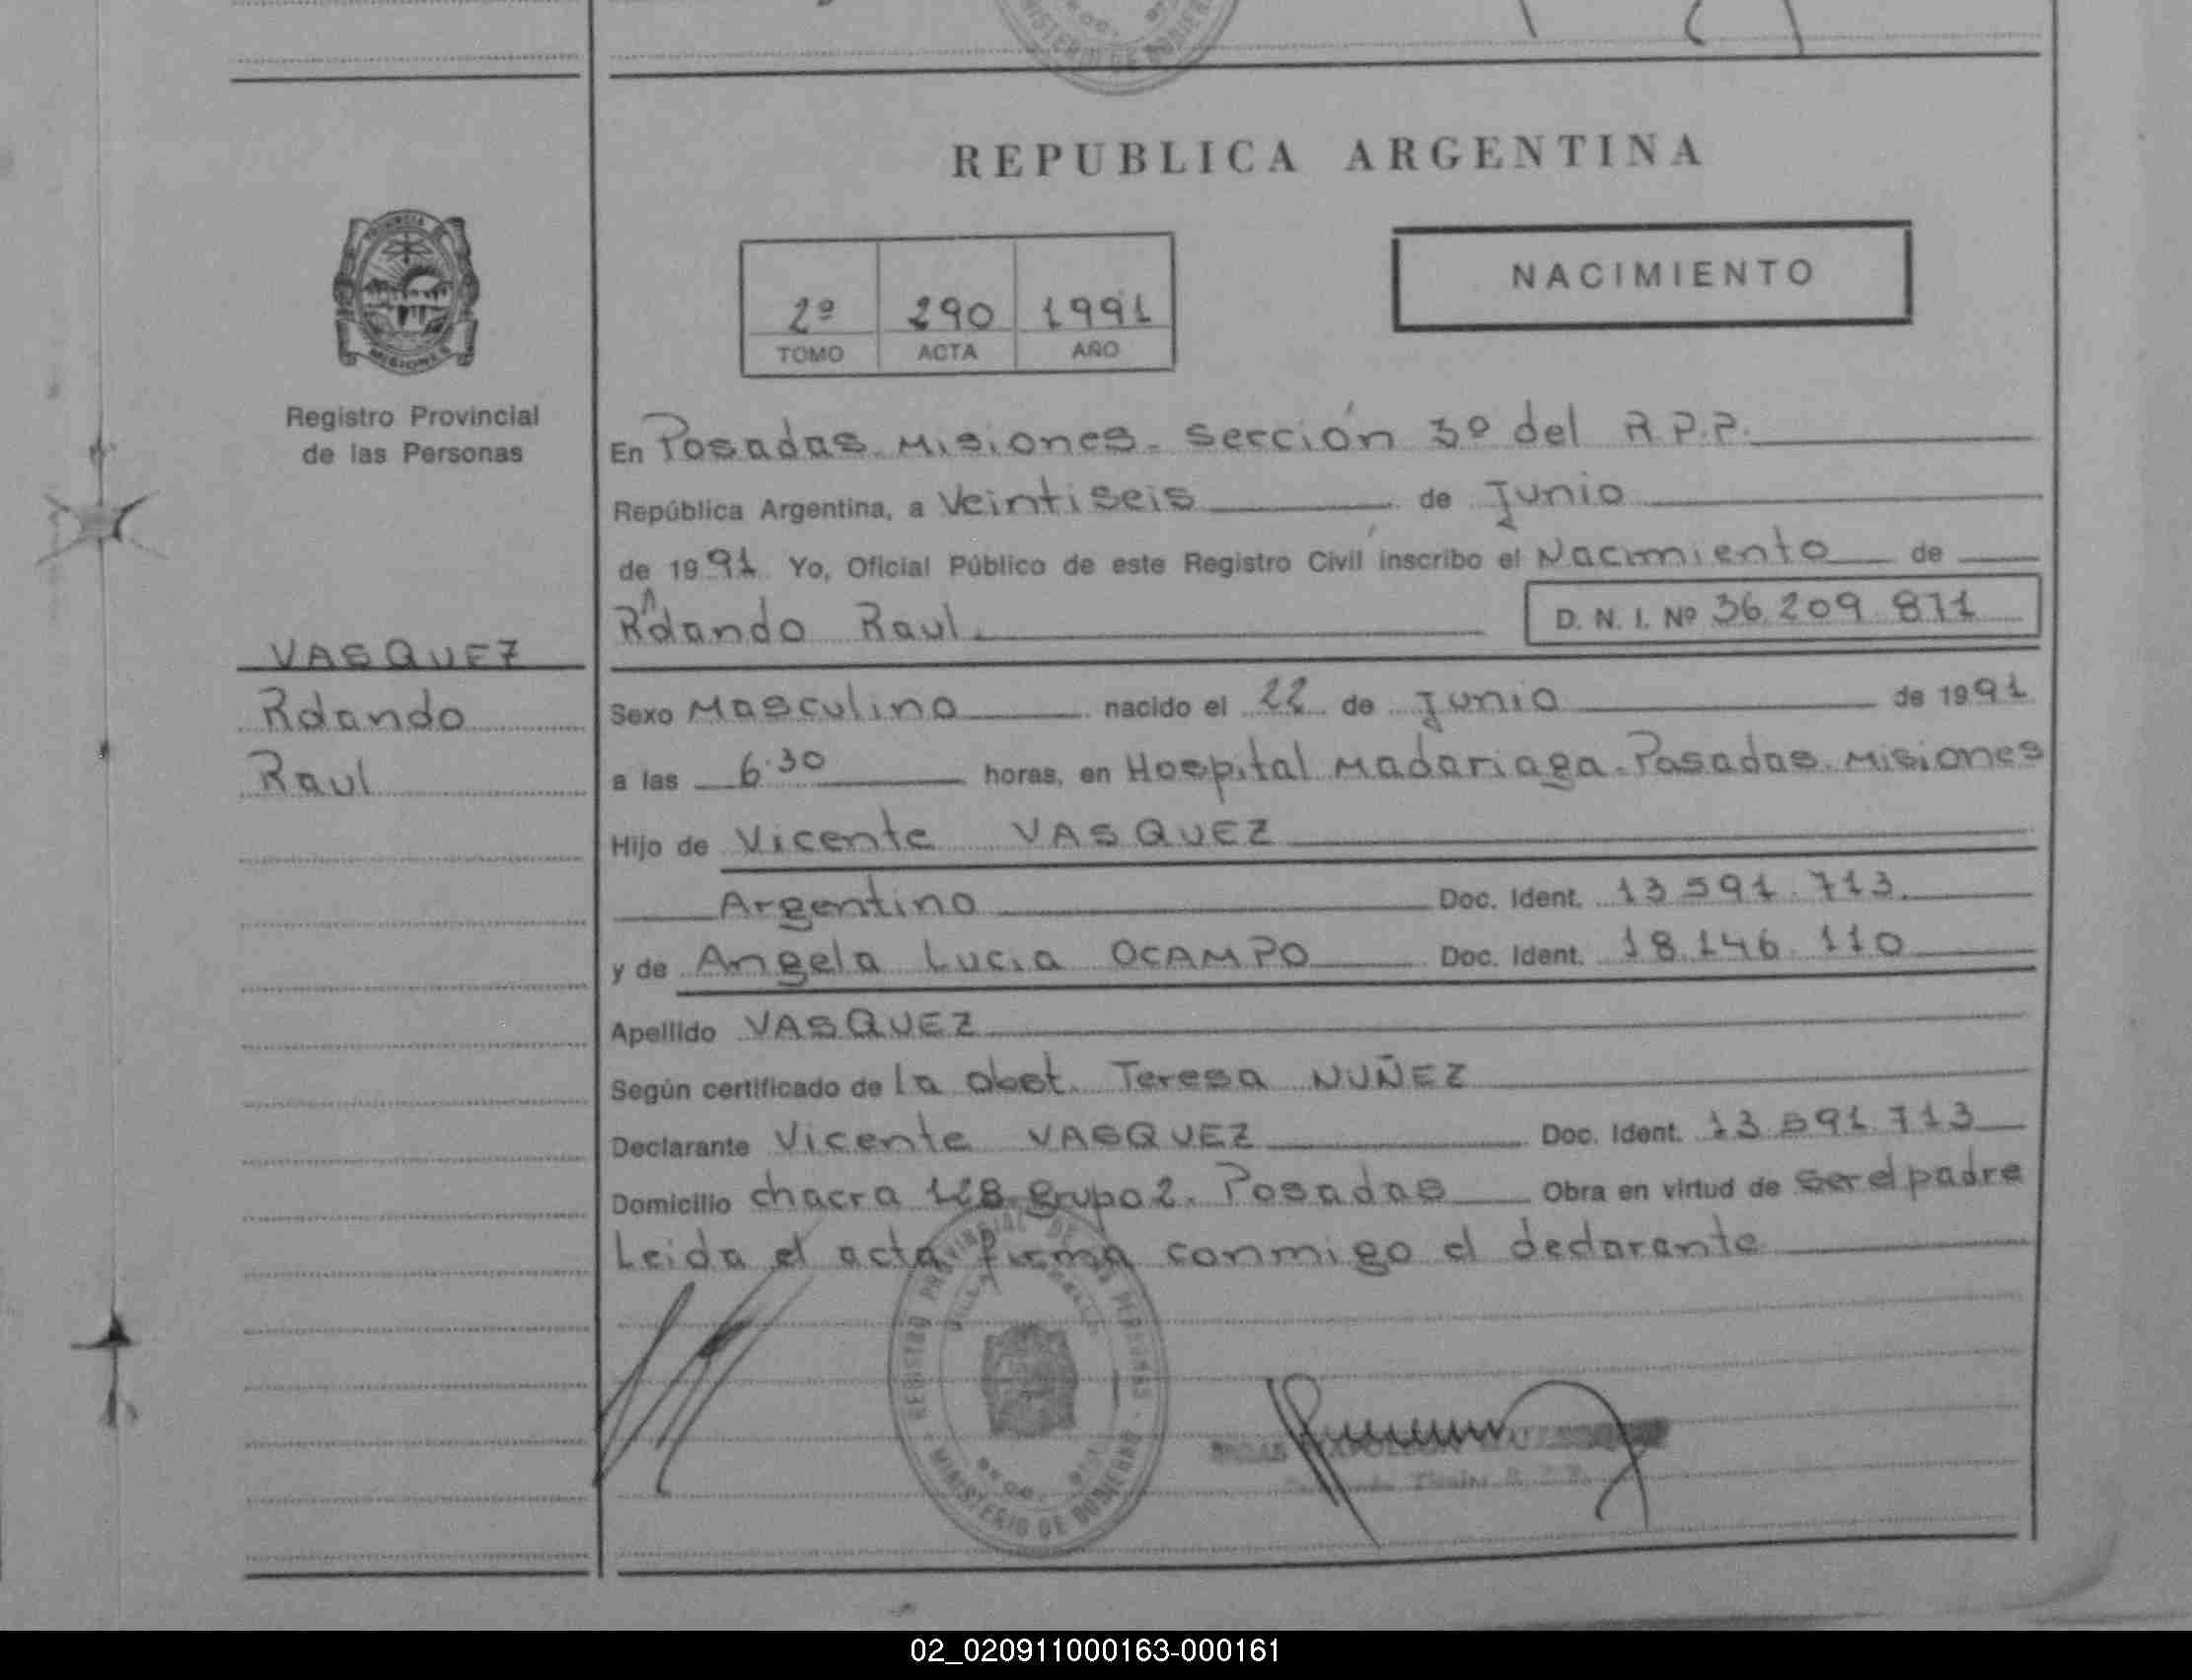 REPUBLICA ARGENTINA
NACIMIENTO
2º 290 1991
TOMO ACTA AÑO
Registro Provincial
de las Personas
VASQUEZ
Rolando
Raul
En Posadas. Misiones. Sección 3º del R.P.P.
República Argentina, a Veintiseis de Junio
de 1991 Yo, Oficial Público de este Registro Civil inscribo el Nacimiento de
Rolando Raul. D. N. I. Nº 36.209.871
Sexo Masculino nacido el 22 de Junio de 1991
a las 6.30 horas, en Hospital Madariaga. Posadas. Misiones
Hijo de Vicente VASQUEZ
Argentino Doc. Ident. 13.591.713.
y de Angela Lucia OCAMPO Doc. Ident. 18.146.110
Apellido VASQUEZ
Según certificado de la obst. Teresa NUÑEZ
Declarante Vicente VASQUEZ Doc. Ident. 13.591.713
Domicilio chacra 128. grupo 2. Posadas Obra en virtud de ser el padre
Leida el acta firma conmigo el declarante
REGISTRO PROVINCIAL DE LAS PERSONAS
MINISTERIO DE GOBIERNO
02_020911000163-000161